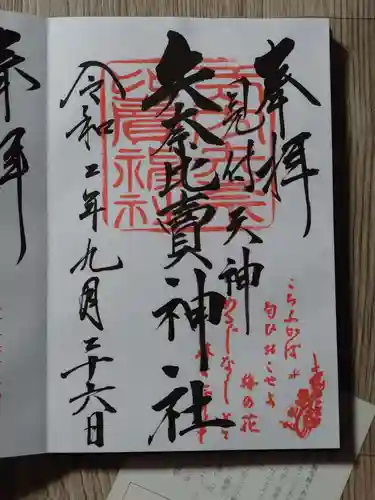 奉拝
見付天神
矢奈比賣神社
令和二年九月二十六日
こちふかば
匂ひおこせよ
梅の花
あるじなしとて
春
奉拝